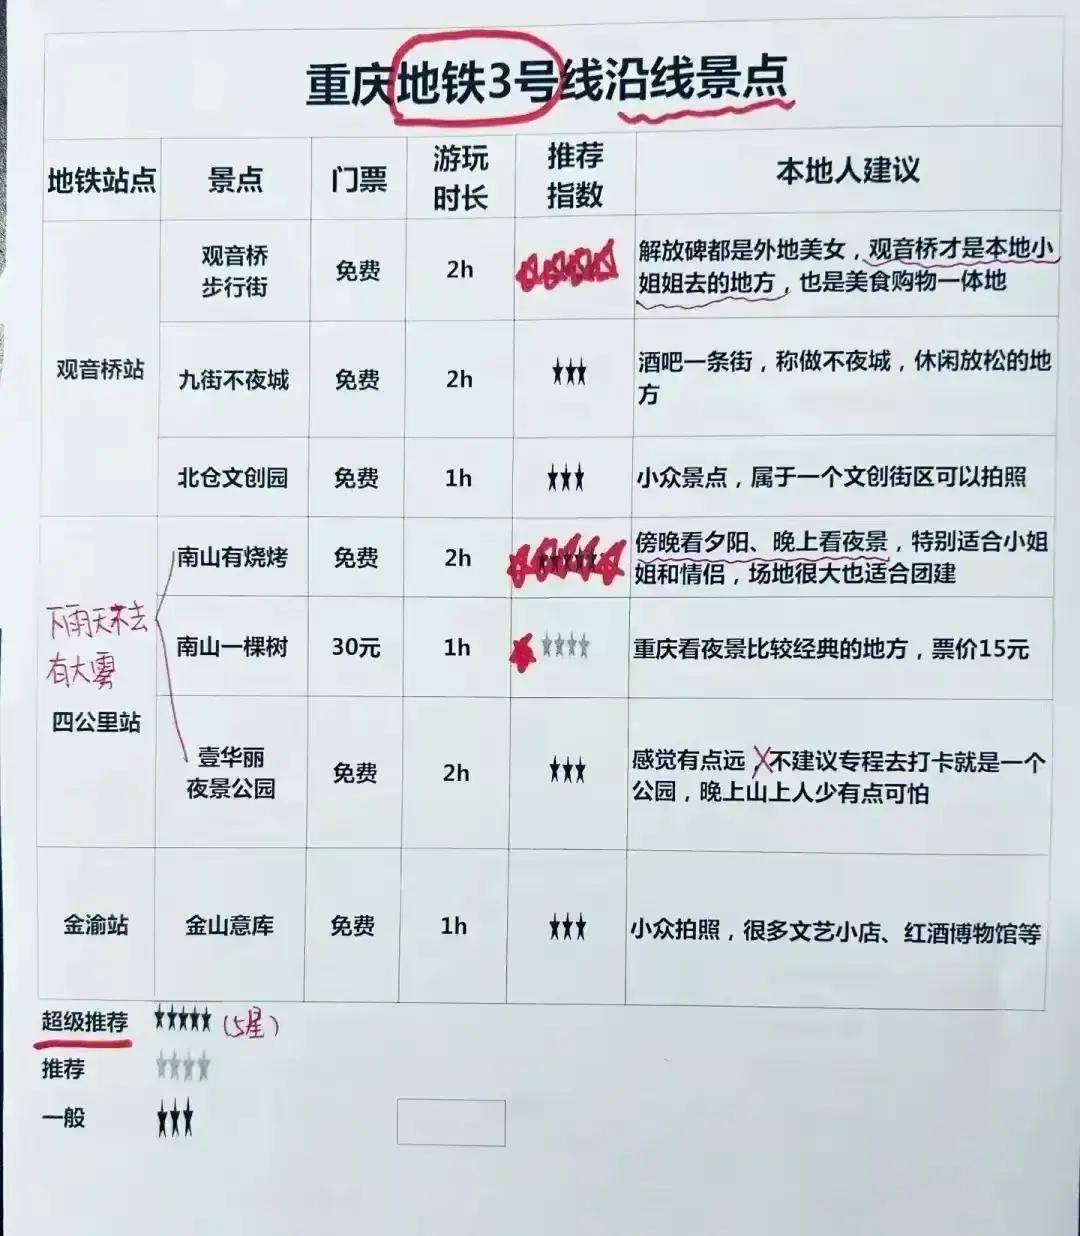 重庆地铁3号线沿线景点
地铁站点 景点 门票 游玩时长 推荐指数 本地人建议
观音桥站
观音桥
步行街
免费
2h
解放碑都是外地美女，观音桥才是本地小
姐姐去的地方，也是美食购物一体地
九街不夜城
免费
2h
★★★
酒吧一条街，称做不夜城，休闲放松的地
方
北仓文创园
免费
1h
★★★
小众景点，属于一个文创街区可以拍照
下雨天不去
有大雾
四公里站
南山有烧烤
免费
2h
★★★★★
傍晚看夕阳、晚上看夜景，特别适合小姐
姐和情侣，场地很大也适合团建
南山一棵树
30元
1h
★★★★
重庆看夜景比较经典的地方，票价15元
壹华丽
夜景公园
免费
2h
★★★
感觉有点远，不建议专程去打卡就是一个
公园，晚上山上人少有点可怕
金渝站
金山意库
免费
1h
★★★
小众拍照，很多文艺小店、红酒博物馆等
超级推荐 ★★★★★ (5星)
推荐 ★★★★
一般 ★★★